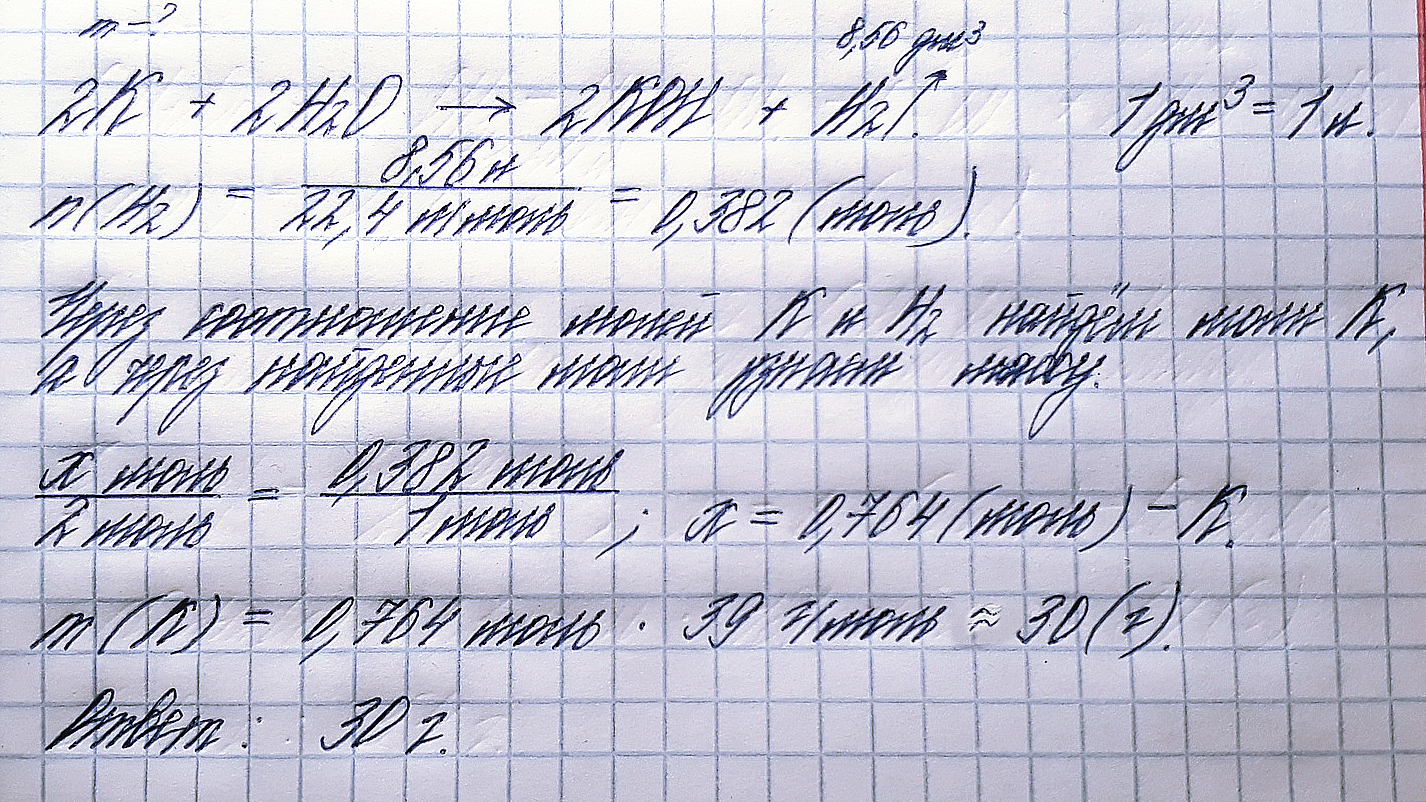 m-? 8,56 дм³
2K + 2H₂O → 2KOH + H₂↑. 1 дм³ = 1 л.
n(H₂) = 8,56 л / 22,4 л/моль = 0,382 (моль).
Через соотношение молей K и H₂ найдём моли K,
а через найденные моли узнаем массу.
x моль / 2 моль = 0,382 моль / 1 моль ; x = 0,764 (моль) - K.
m(K) = 0,764 моль · 39 г/моль ≈ 30 (г).
Ответ: 30 г.